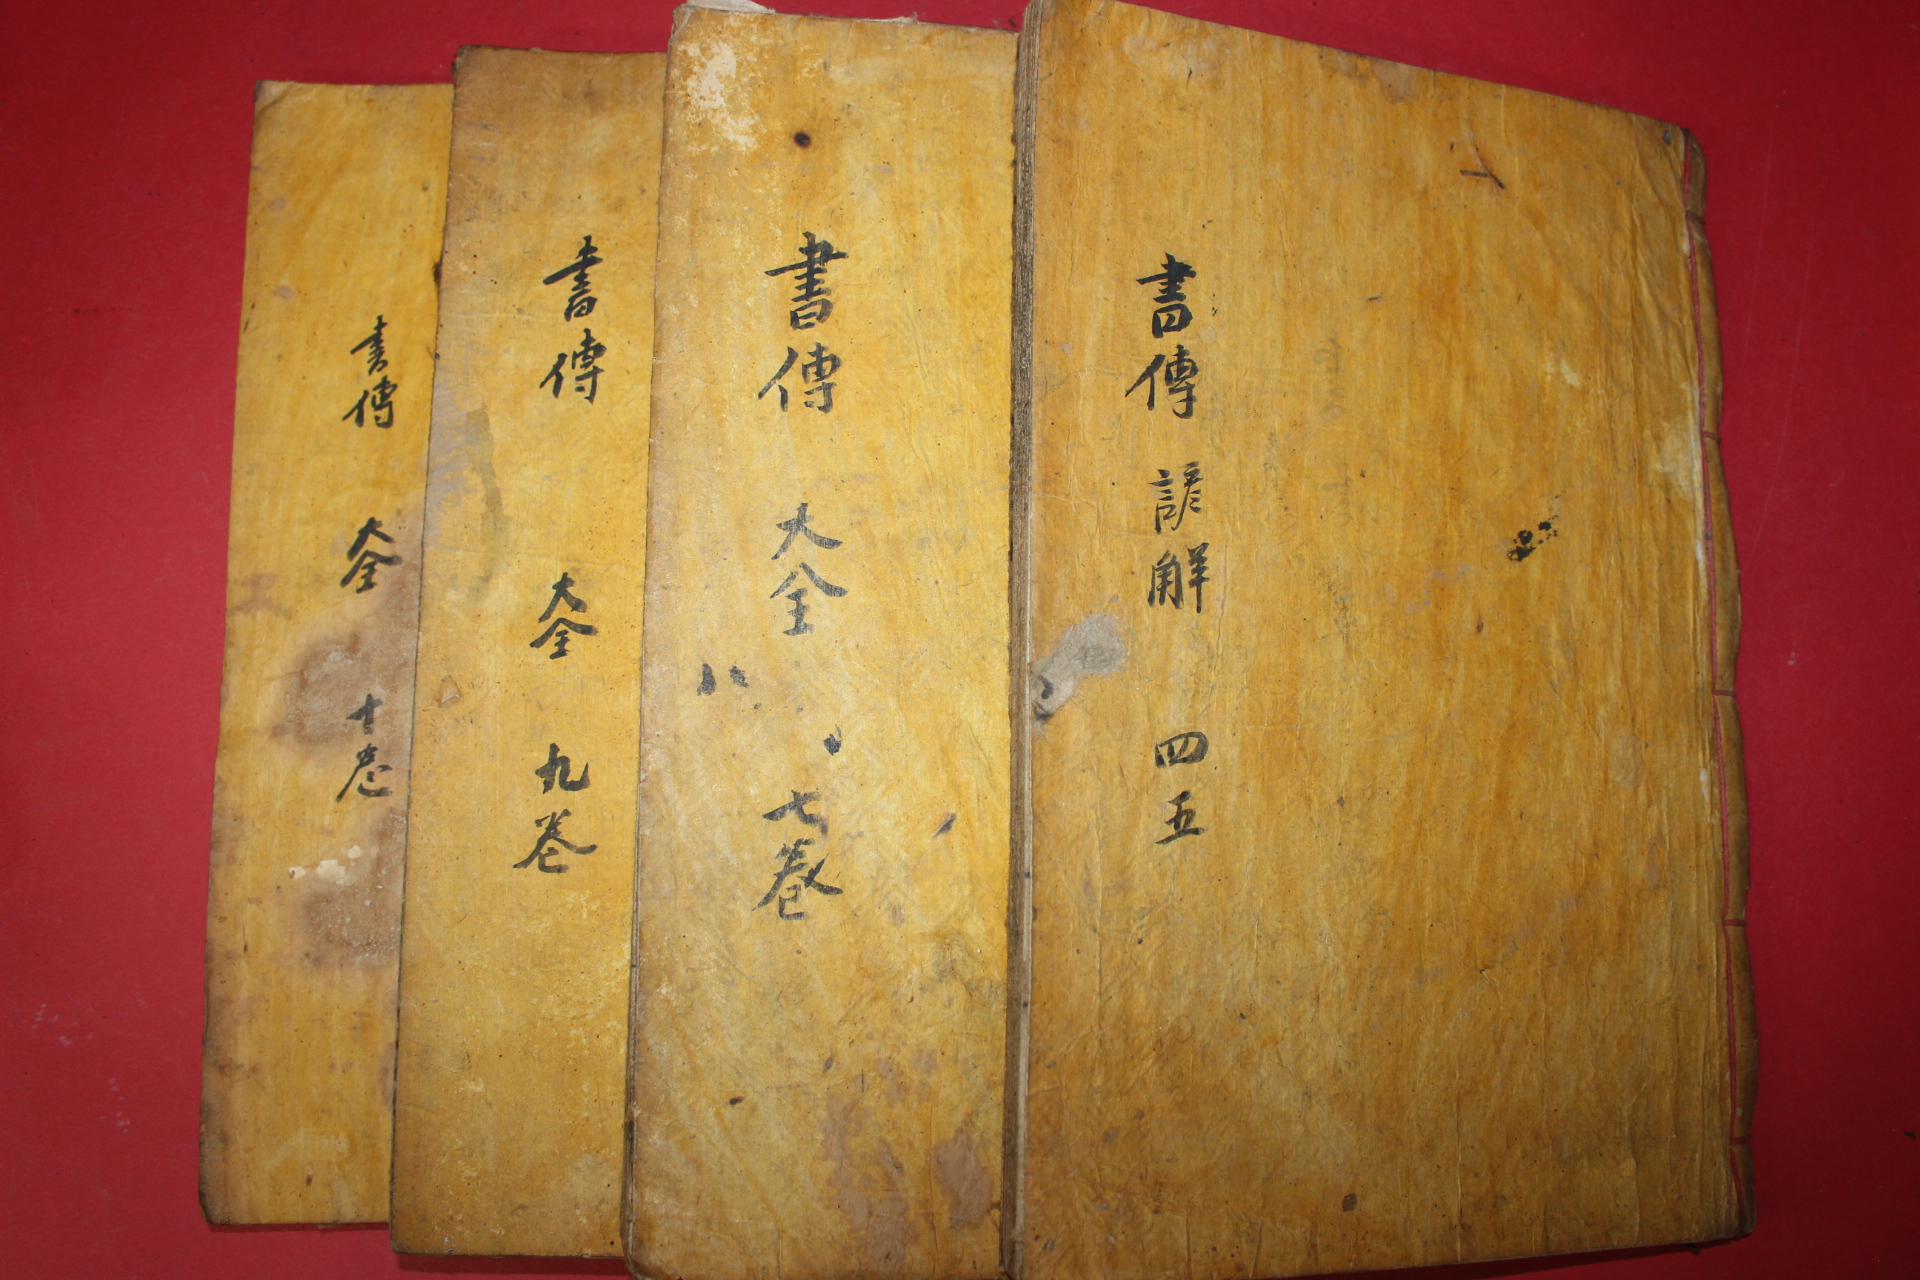 書傳 諺解 四五
書傳 大全 七卷
書傳 大全 九卷
書傳 大全 十卷